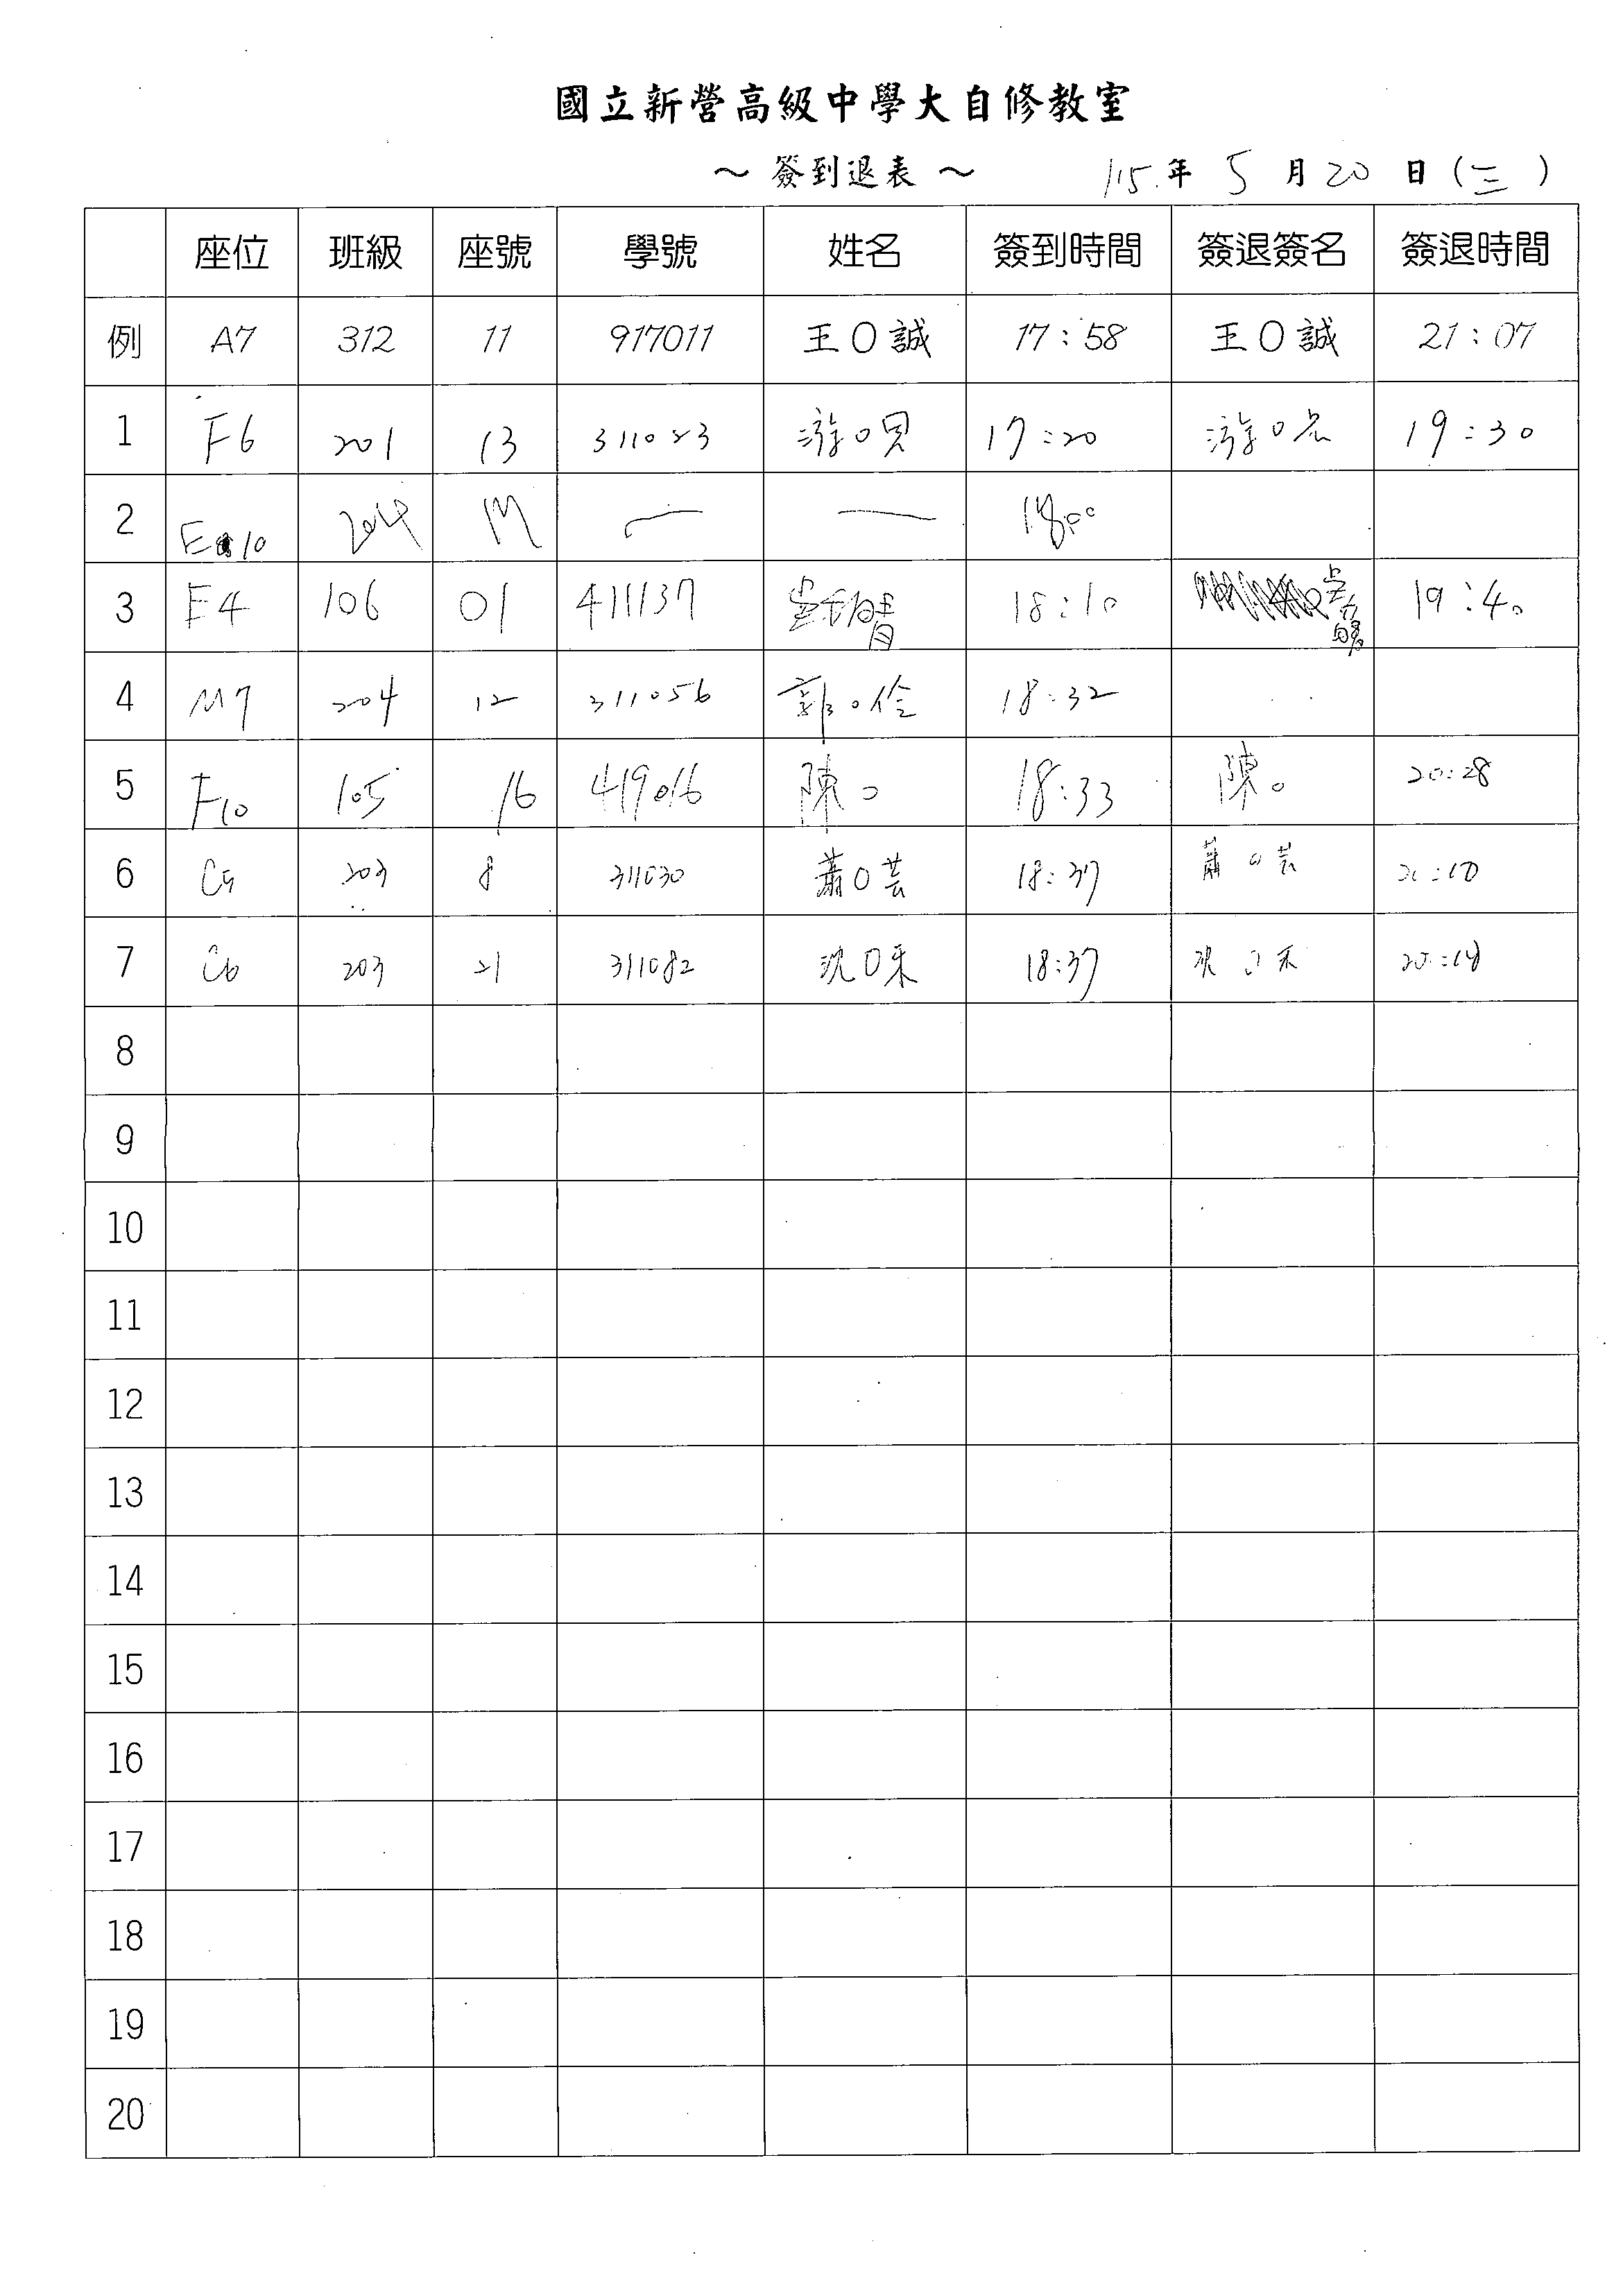 國立新營高級中學大自修教室
～ 簽到退表 ～ 115.年 5 月 20 日 (三)
座位 班級 座號 學號 姓名 簽到時間 簽退簽名 簽退時間
例 A7 312 11 917011 王〇誠 17:58 王〇誠 21:07
1 F6 201 13 311023 游〇 17:20 游〇 19:30
2 E 10 204 17 — —
3 E4 106 01 411137 18:10 19:40
4 M7 204 12 311056 郭〇伶 18:32
5 F10 105 16 419016 陳〇 18:33 陳〇 20:28
6 203 8 311030 蕭〇芸 18:37 蕭〇芸
7 C6 203 21 311082 沈〇禾 18:37 沈〇禾
8
9
10
11
12
13
14
15
16
17
18
19
20